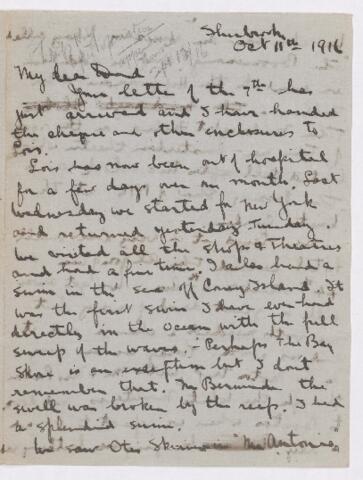 Sherbrooke
Oct 11th 1916
My dear Dad
Your letter of the 7th has
just arrived and I have handed
the cheque and other enclosures to
Lois.
Lois has now been out of hospital
for a few days over a month. Last
Wednesday we started for New York
and returned yesterday Tuesday.
We visited all the shops & Theatres
and had a fine time. I also had a
swim in the sea off Coney Island. It
was the first swim I have ever had
directly in the Ocean with the full
sweep of the waves. - Perhaps the Bay
Shore is an exception but I dont
remember that. In Bermuda the
swell was broken by the reefs. I had
a splendid swim.
We saw Otis Skinner in Mr Antonio,